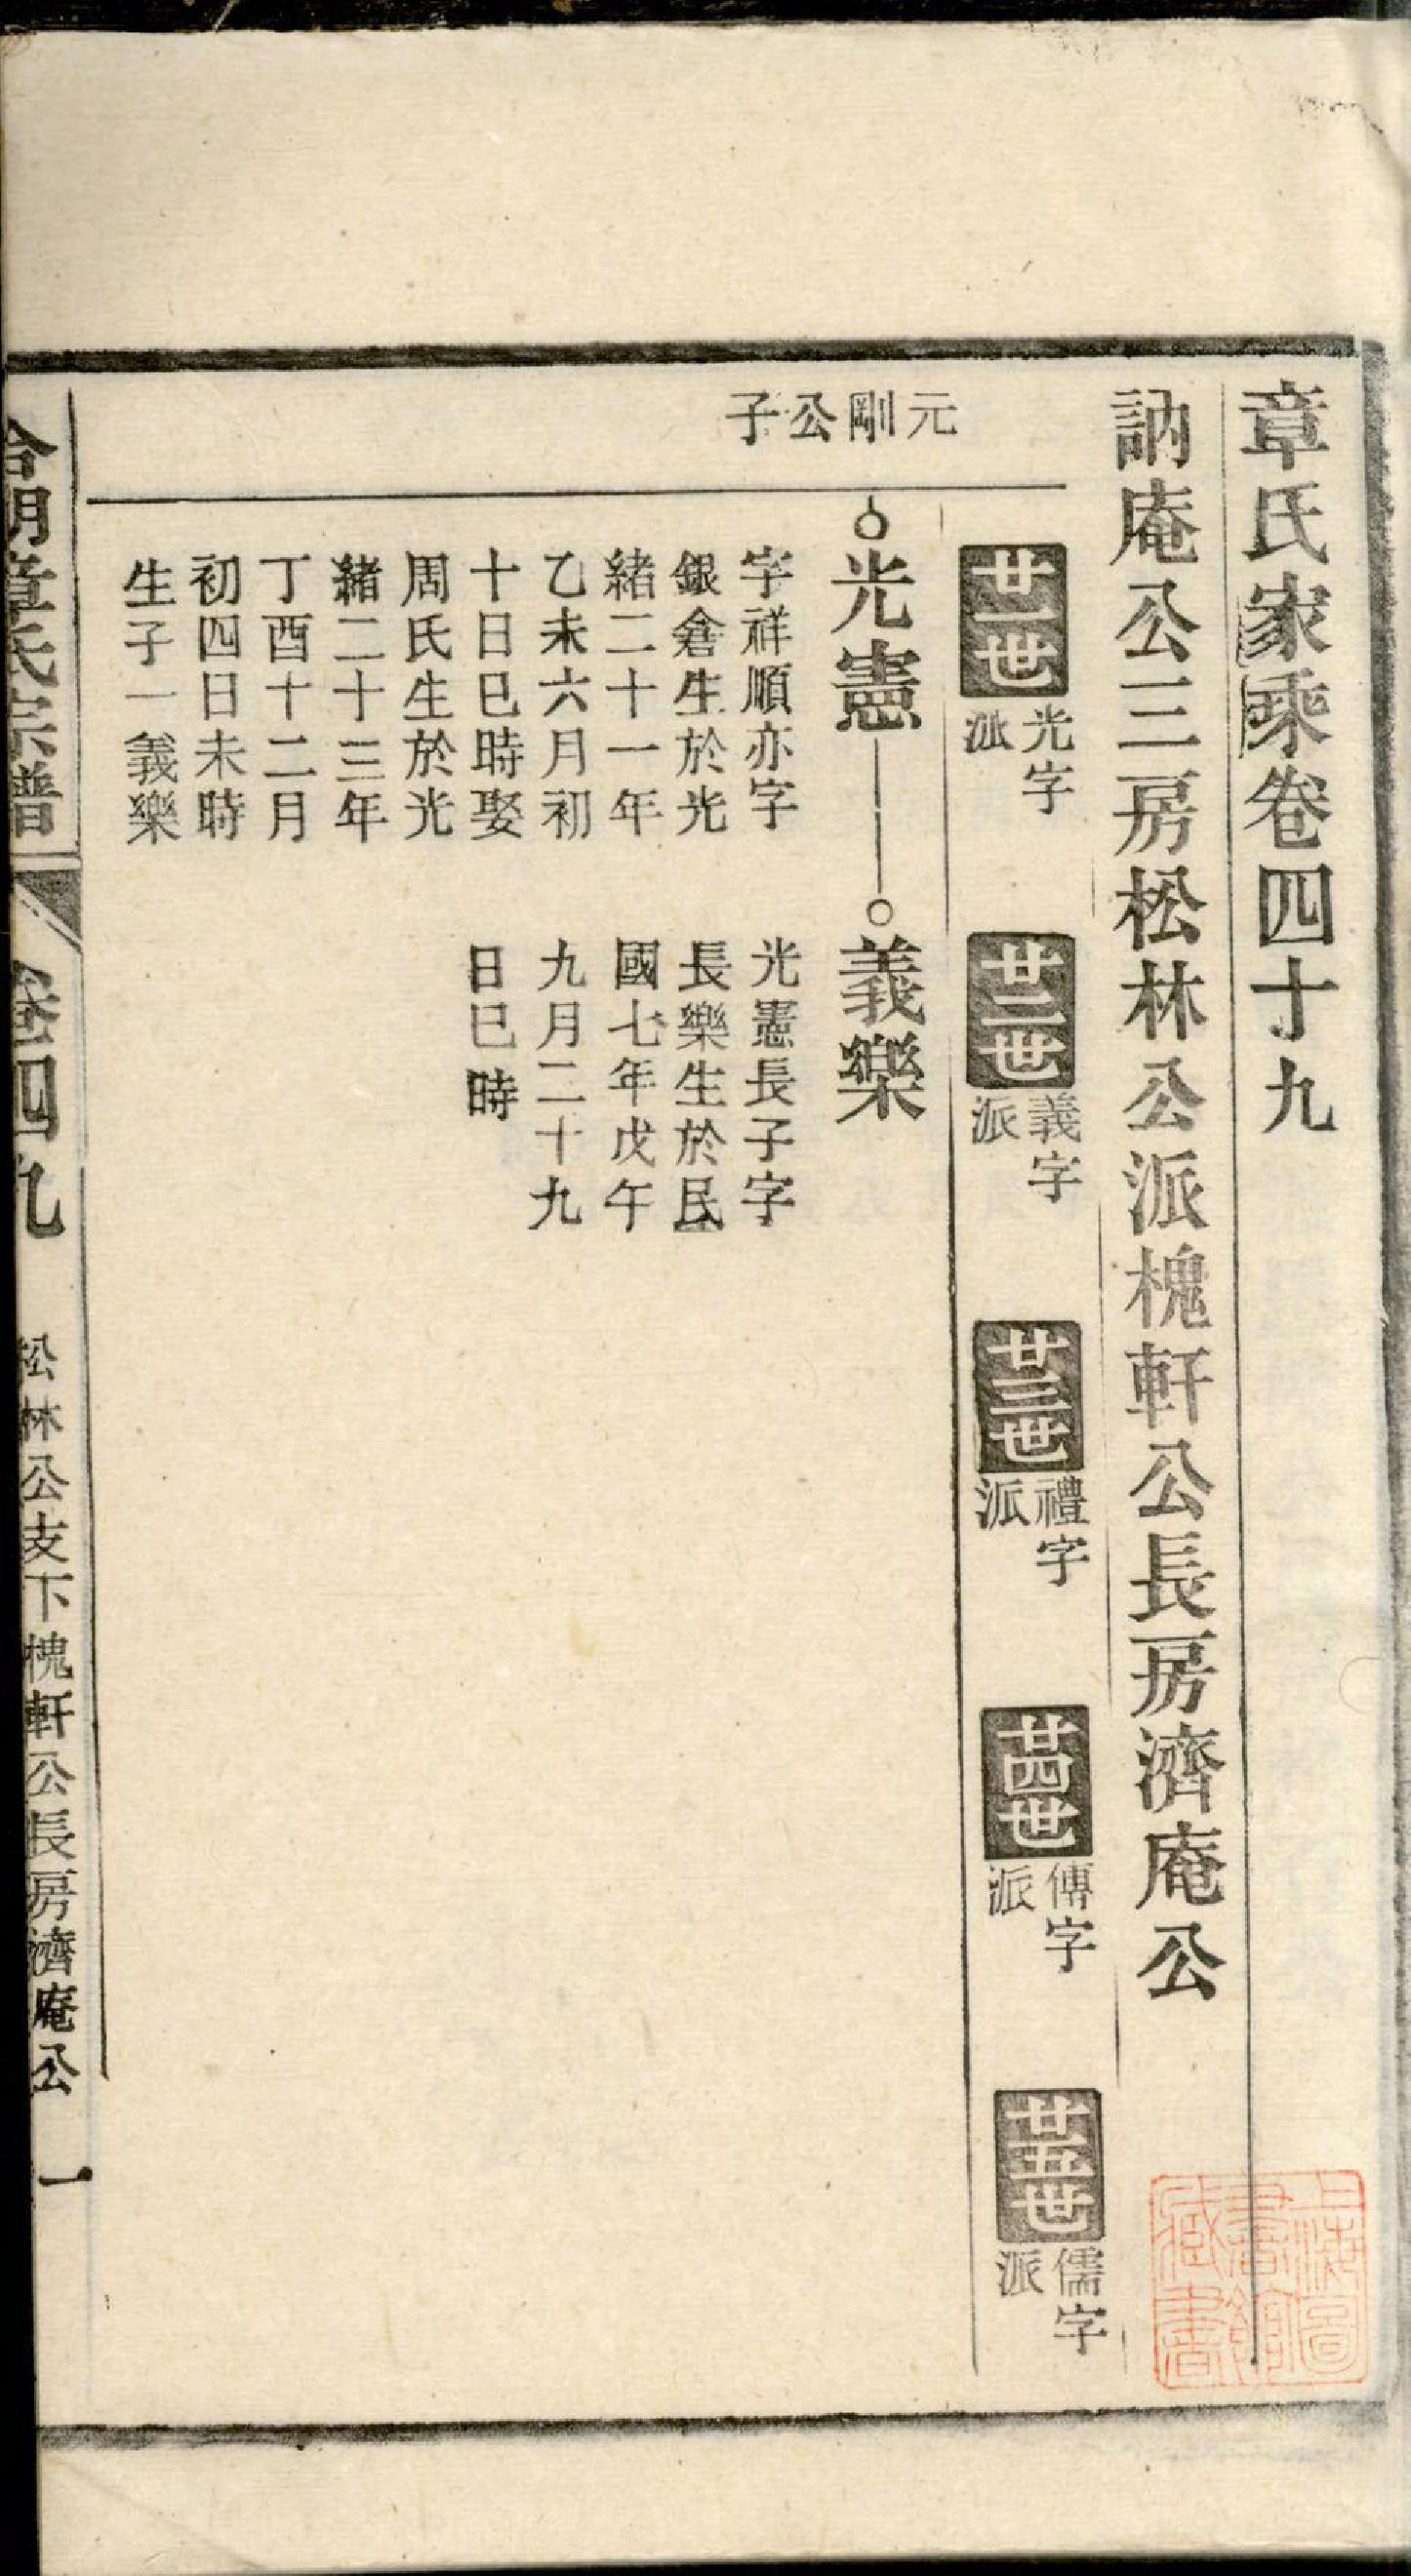 章氏家乘卷四十九
訥庵公三房松林公派槐軒公長房濟庵公
廿一世 光字派
廿二世 義字派
廿三世 禮字派
廿四世 傳字派
廿五世 儒字派
元剛公子
光憲
字祥順亦字
銀倉生於光
緒二十一年
乙未六月初
十日巳時娶
周氏生於光
緒二十三年
丁酉十二月
初四日未時
生子一義樂
義樂
光憲長子字
長樂生於民
國七年戊午
九月二十九
日巳時
章氏宗譜
卷四九
松林公支下槐軒公長房濟庵公
一
上海圖書館藏書